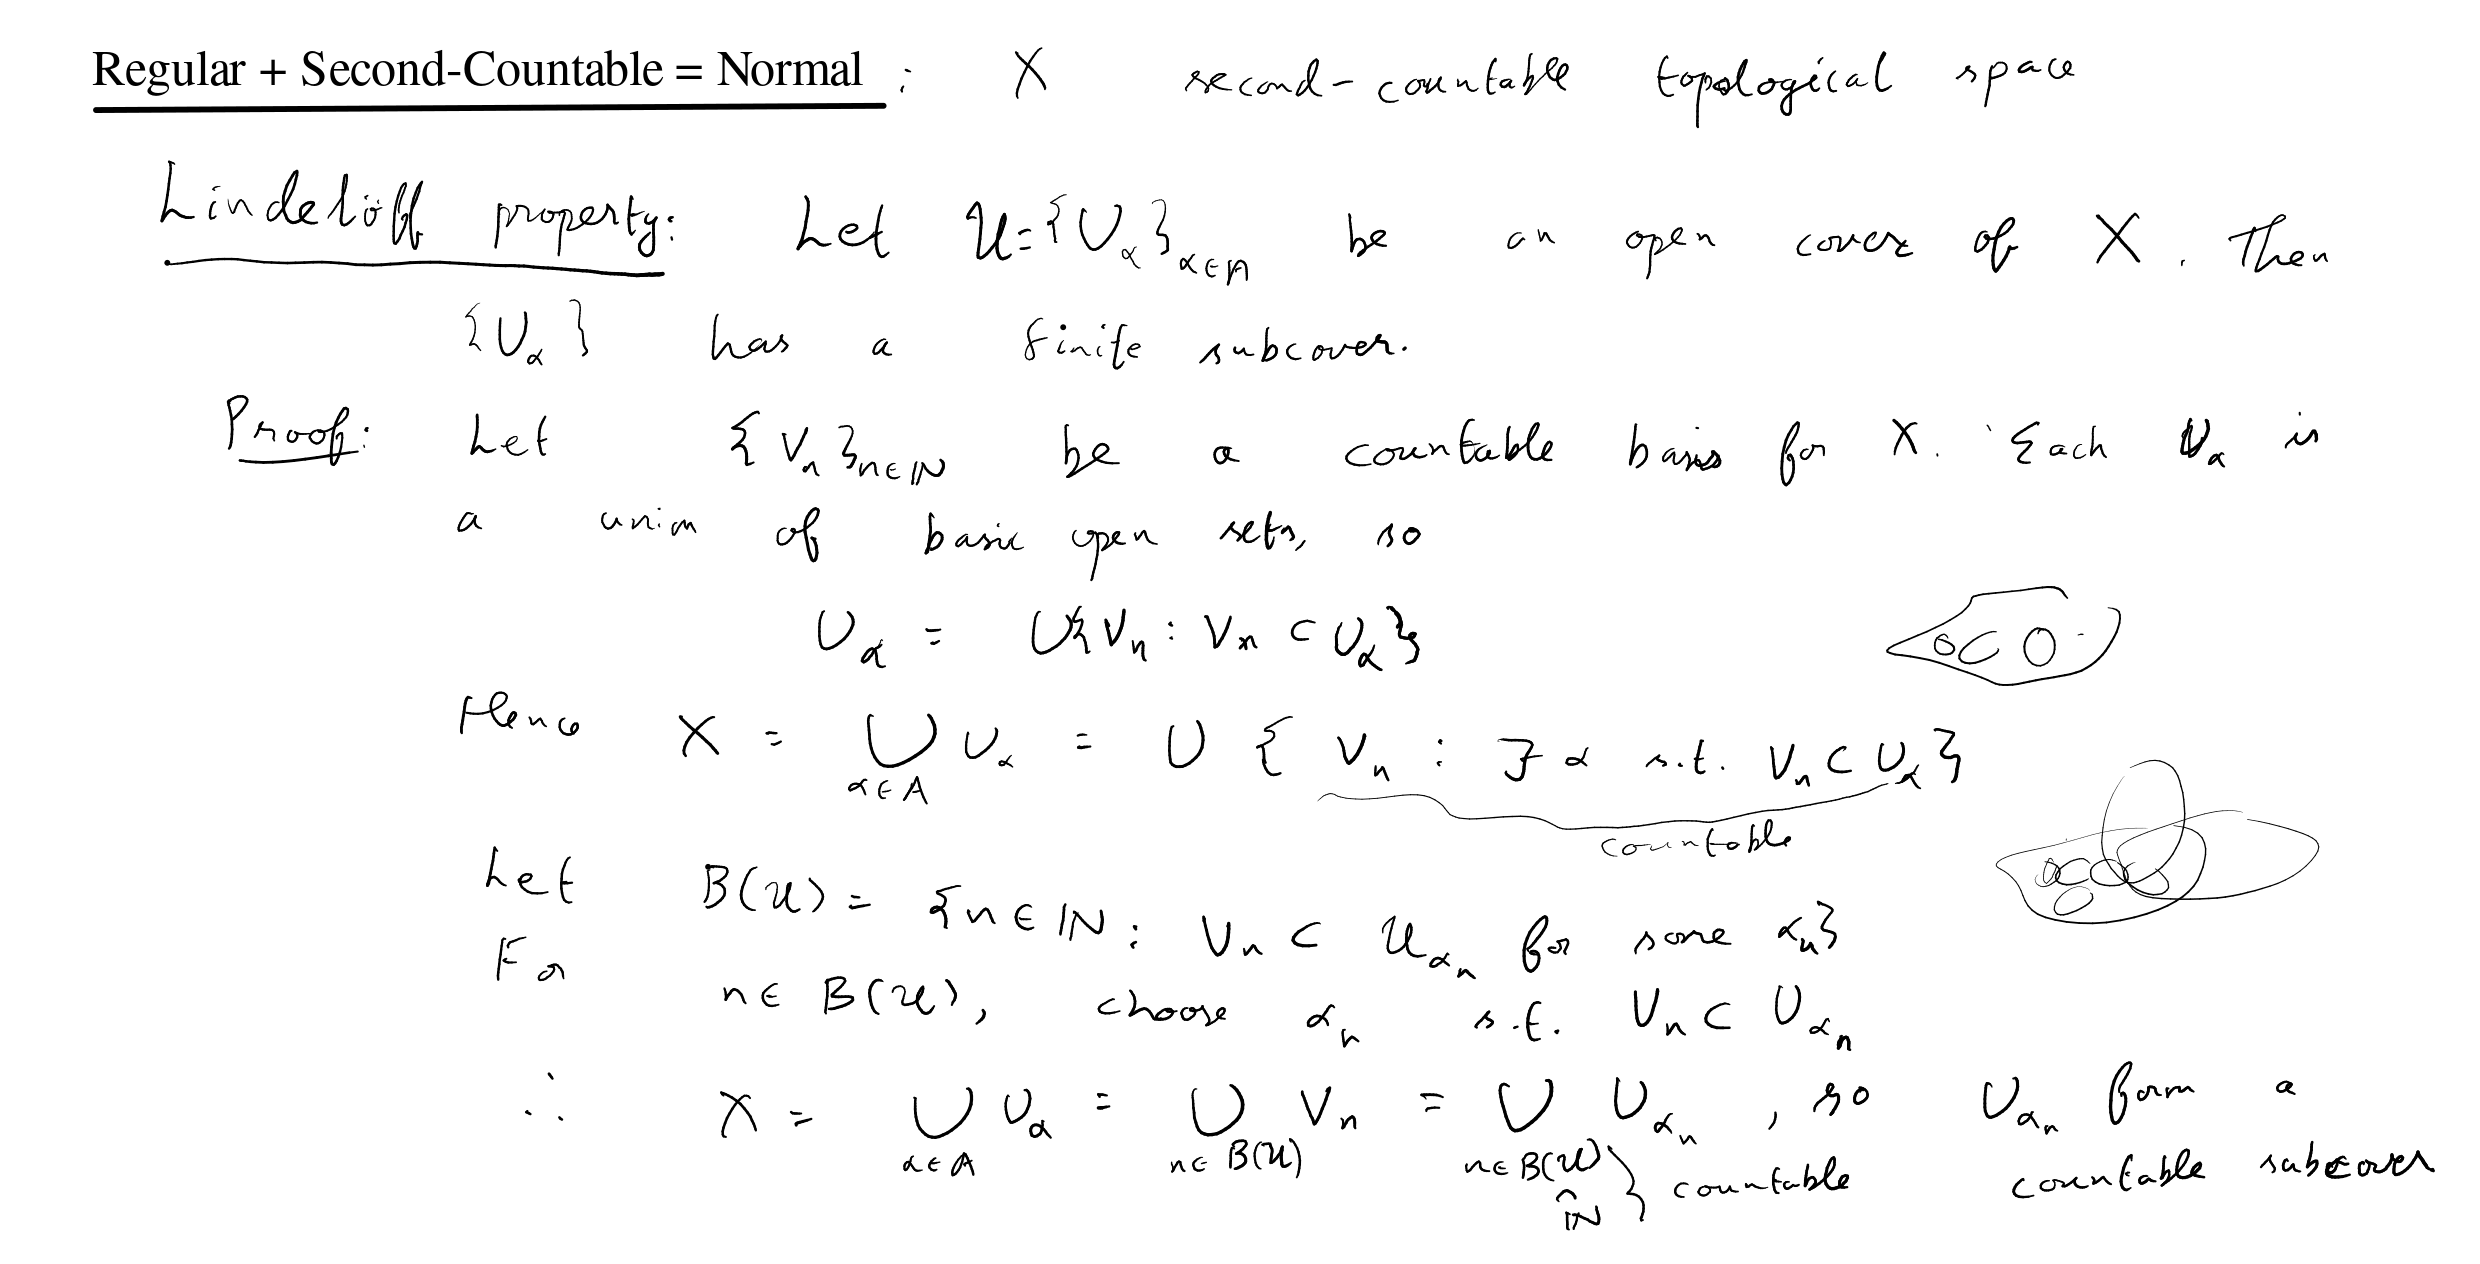 Regular + Second-Countable = Normal : X second-countable topological space
Lindelöff property: Let 𝒰 = {U_α}_{α∈A} be an open cover of X. Then
{U_α} has a finite subcover.
Proof: Let {V_n}_{n∈ℕ} be a countable basis for X. Each U_α is
a union of basic open sets, so
U_α = ∪{V_n : V_n ⊂ U_α}
Hence X = ⋃_{α∈A} U_α = ∪ { V_n : ∃ α s.t. V_n ⊂ U_α}
countable
Let B(𝒰) = {n ∈ ℕ : V_n ⊂ 𝒰_{α_n} for some α_n}
For n ∈ B(𝒰), choose α_n s.t. V_n ⊂ U_{α_n}
∴ X = ⋃_{α∈A} U_α = ⋃_{n∈B(𝒰)} V_n = ⋃_{n∈B(𝒰)} U_{α_n}, so U_{α_n} form a
∩ ℕ } countable countable subcover